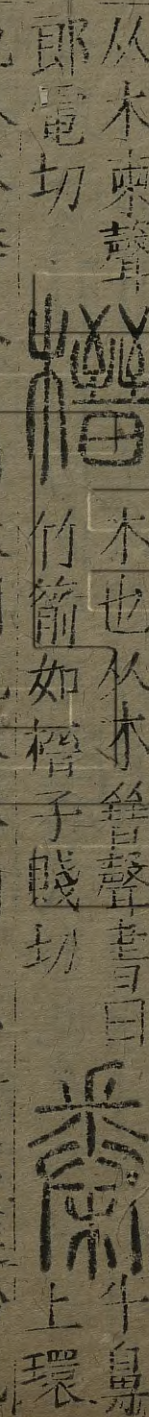 从木柬聲
郎電切
榗
木也从木晉聲書曰
竹箭如榗子賤切
桊
牛鼻
上環